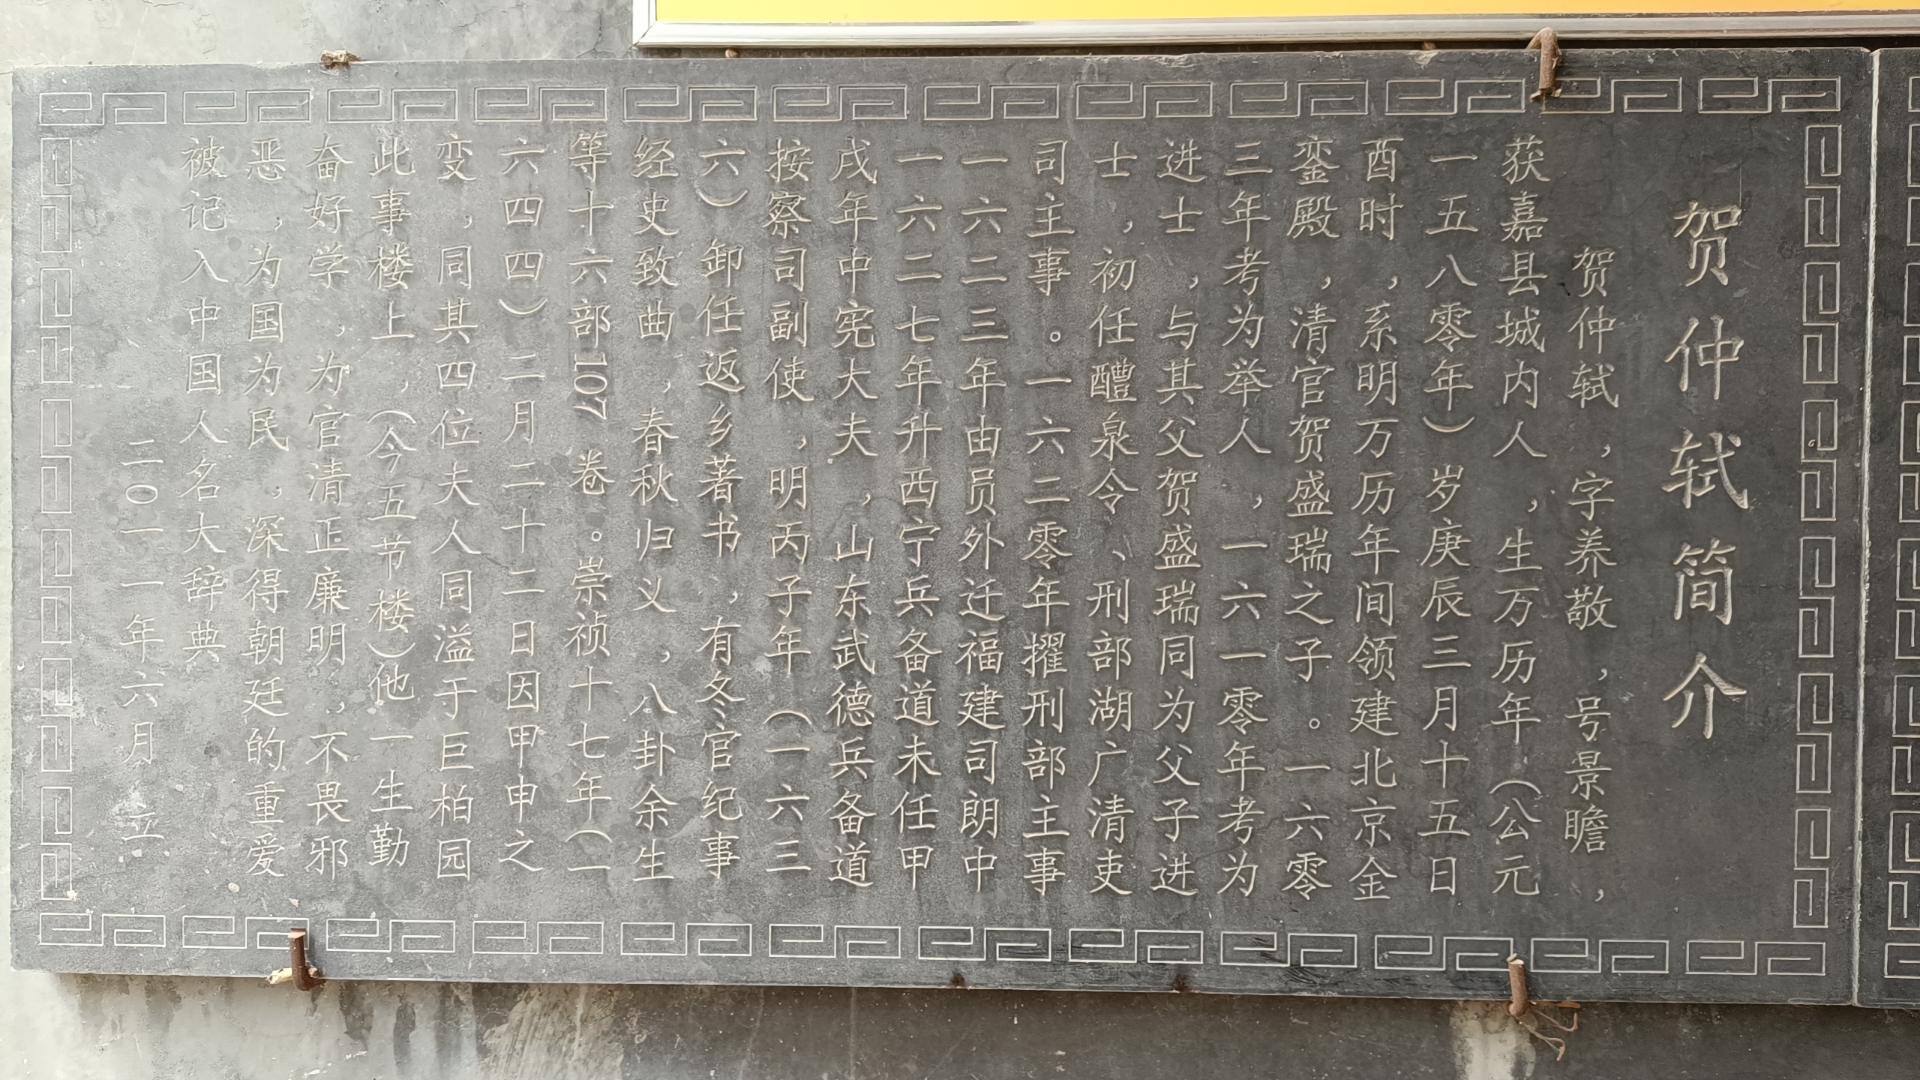 贺仲轼简介
贺仲轼，字养敬，号景瞻，
获嘉县城内人，生万历年（公元
一五八零年）岁庚辰三月十五日
酉时，系明万历年间领建北京金
銮殿，清官贺盛瑞之子。一六零
三年考为举人，一六一零年考为
进士，与其父贺盛瑞同为父子进
士，初任醴泉令、刑部湖广清吏
司主事。一六二零年擢刑部主事
一六二三年由员外迁福建司朗中
一六二七年升西宁兵备道未任甲
戌年中宪大夫，山东武德兵备道
按察司副使，明丙子年（一六三
六）卸任返乡著书，有冬官纪事
经史致曲，春秋归义，八卦余生
等十六部107卷。崇祯十七年（一
六四四）二月二十二日因甲申之
变，同其四位夫人同溢于巨柏园
此事楼上，（今五节楼）他一生勤
奋好学，为官清正廉明，不畏邪
恶，为国为民，深得朝廷的重爱
被记入中国人名大辞典
二0一一年六月立